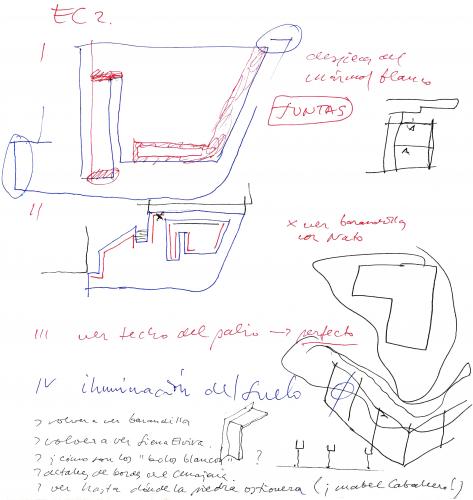 EC2.
I
despiece del
mármol blanco
JUNTAS
II
x ver barandilla
con Nato
III ver techo del patio → perfecto
IV iluminación del suelo
> volver a ver barandilla
> volver a ver Elvira.
> ¿cómo son los "bolos blancos"
?
> detalles de borde del
> ver hasta dónde la piedra (¡mabel Caballero!)